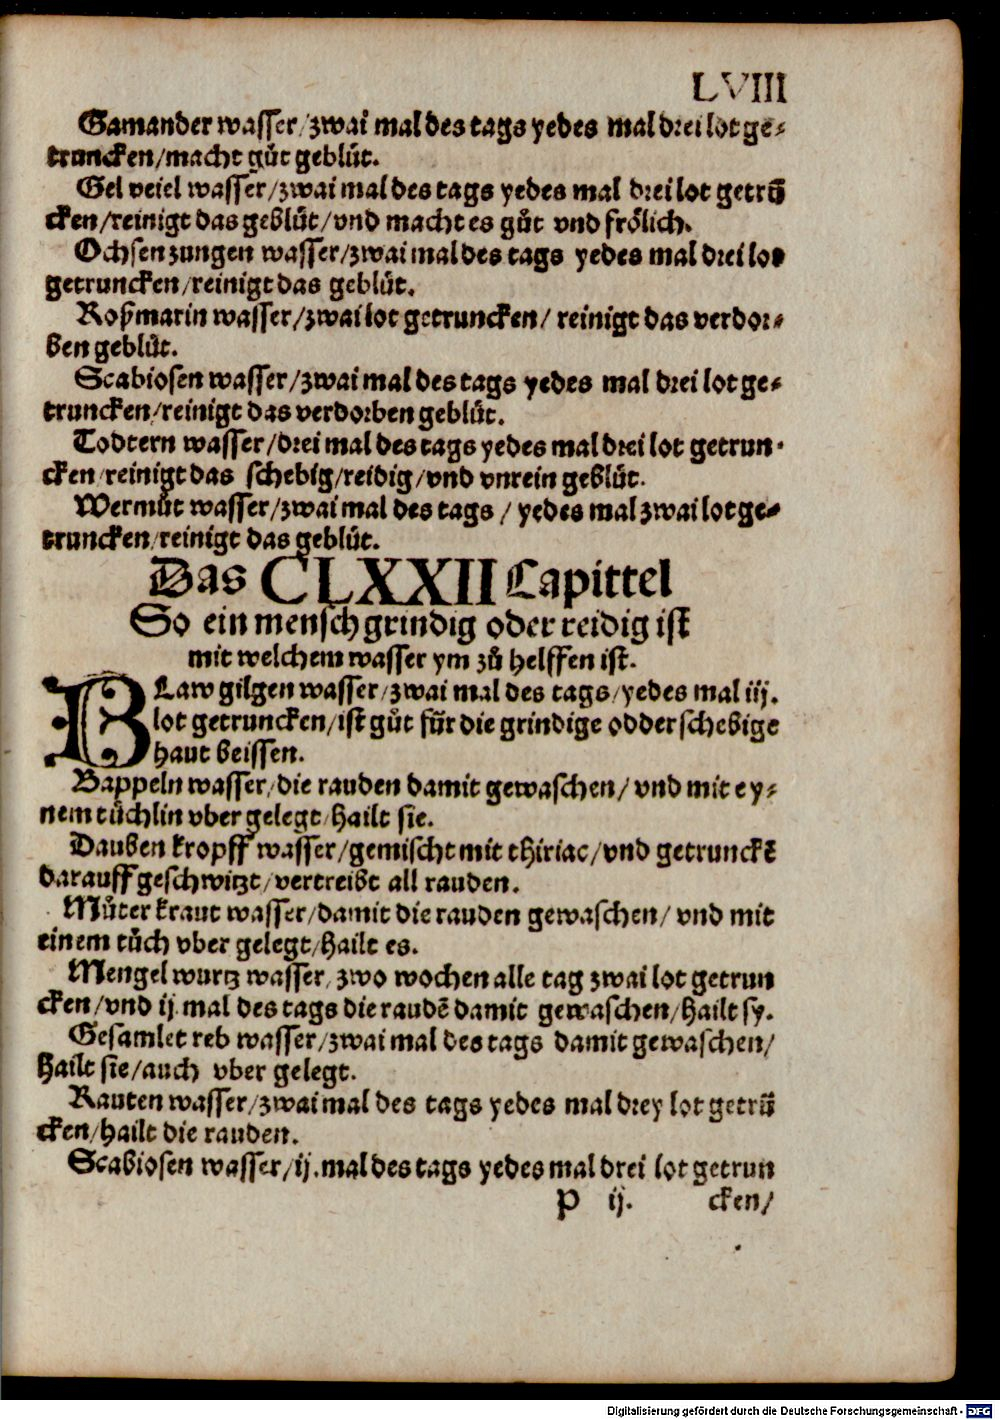 LVIII
Gamander wasser/zwai mal des tags yedes mal drei lot ge⸗
truncken/macht gůt geblůt.
Gel veiel wasser/zwai mal des tags yedes mal drei lot getrū
cken/reinigt das geblůt/vnd macht es gůt vnd frölich.
Ochsenzungen wasser/zwai mal des tags yedes mal drei lot
getruncken/reinigt das geblůt.
Roßmarin wasser/zwai lot getruncken/ reinigt das verdor⸗
ben geblůt.
Scabiosen wasser/zwai mal des tags yedes mal drei lot ge⸗
truncken/reinigt das verdorben geblůt.
Todtern wasser/drei mal des tags yedes mal drei lot getrun⸗
cken/reinigt das schebig/reidig/vnd vnrein geblůt.
Wermůt wasser/zwai mal des tags / yedes mal zwai lot ge⸗
truncken/reinigt das geblůt.
Das CLXXII Capittel
So ein mensch grindig oder reidig ist
mit welchem wasser ym zů helffen ist.
BLaw gilgen wasser/zwai mal des tags/yedes mal iij.
lot getruncken/ist gůt für die grindige odder schebige
haut beissen.
Bappeln wasser/die rauden damit gewaschen/ vnd mit ey⸗
nem tüchlin vber gelegt/hailt sie.
Dauben kropff wasser/gemischt mit thiriac/vnd getrunckē
darauff geschwitzt/vertreibt all rauden.
Můter kraut wasser/damit die rauden gewaschen/ vnd mit
einem tůch vber gelegt/hailt es.
Mengel wurtz wasser/zwo wochen alle tag zwai lot getrun
cken/vnd ij.mal des tags die raudē damit gewaschen/hailt sy.
Gesamlet reb wasser/zwai mal des tags damit gewaschen/
hailt sie/auch vber gelegt.
Rauten wasser/zwai mal des tags yedes mal drey lot getrū
cken/hailt die rauden.
Scabiosen wasser/ij.mal des tags yedes mal drei lot getrun
P ij. cken/
Digitalisierung gefördert durch die Deutsche Forschungsgemeinschaft - DFG